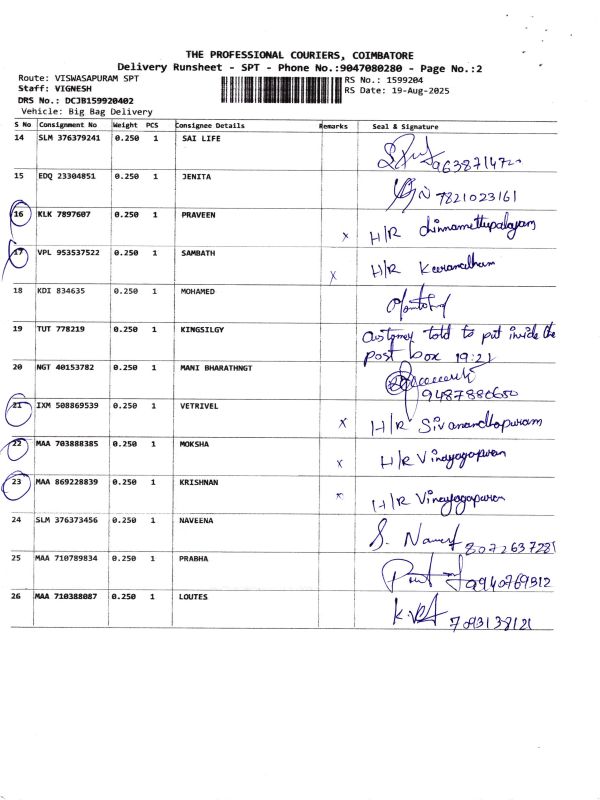 THE PROFESSIONAL COURIERS, COIMBATORE
Delivery Runsheet - SPT - Phone No.:9047080280 - Page No.:2
Route: VISWASAPURAM SPT RS No.: 1599204
Staff: VIGNESH RS Date: 19-Aug-2025
DRS No.: DCJB159920402
Vehicle: Big Bag Delivery
S No Consignment No Weight PCS Consignee Details Remarks Seal & Signature
14 SLM 376379241 0.250 1 SAI LIFE
15 EDQ 23304851 0.250 1 JENITA 7821023161
16 KLK 7897607 0.250 1 PRAVEEN x H/R chinnamettupalayam
17 VPL 953537522 0.250 1 SAMBATH x H/R
18 KDI 834635 0.250 1 MOHAMED
19 TUT 778219 0.250 1 KINGSILGY customer told to put inside the
post box 19:21
20 NGT 40153782 0.250 1 MANI BHARATHNGT 9487880650
21 IXM 508869539 0.250 1 VETRIVEL x H/R Sivanandhapuram
22 MAA 703888385 0.250 1 MOKSHA x H/R Vinayagapuram
23 MAA 869228839 0.250 1 KRISHNAN x H/R Vinayagapuram
24 SLM 376373456 0.250 1 NAVEENA 8072637281
25 MAA 710789834 0.250 1 PRABHA 9940769312
26 MAA 710388087 0.250 1 LOUTES